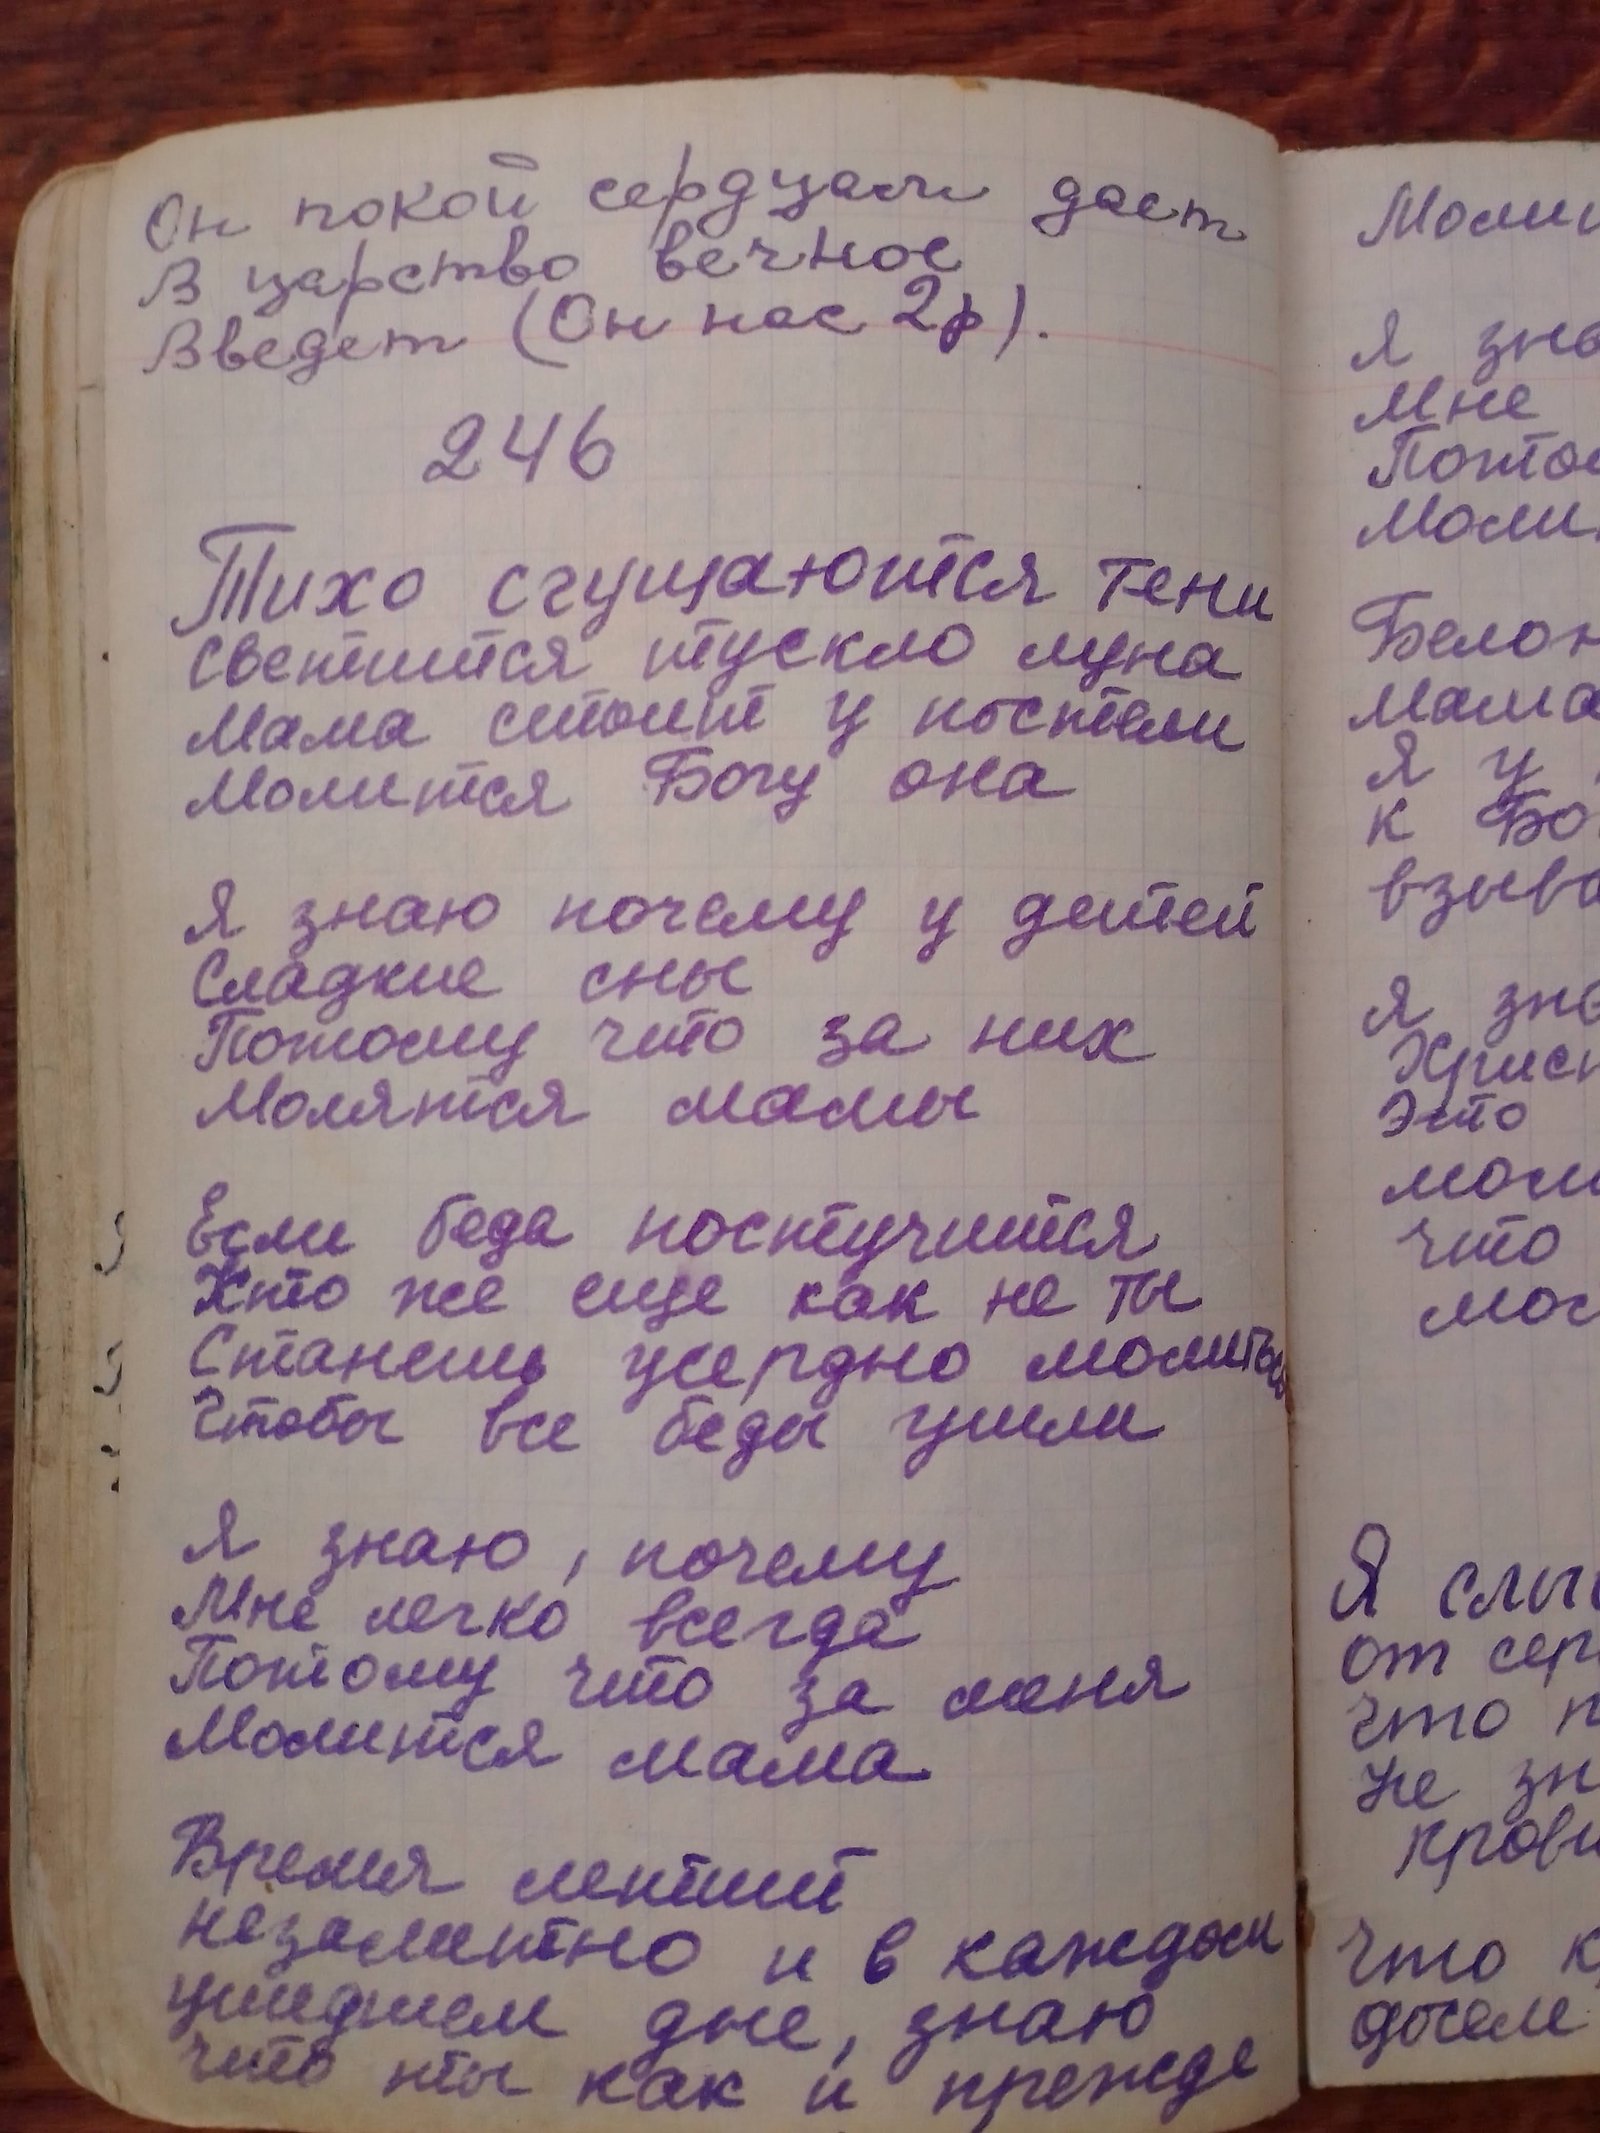 Он покой сердцам дает
В царство вечное
Введет (Он нас 2р).
246
Тихо сгущаются тени
Светится тускло луна
Мама стоит у постели
Молится Богу она
Я знаю почему у детей
Сладкие сны
Потому что за них
Молятся мамы
Если беда постучится
Кто же еще как не ты
Станешь усердно молиться
Чтобы все беды ушли
Я знаю, почему
Мне легко всегда
Потому что за меня
Молится мама
Время летит
незаметно и в каждом
ушедшем дне, знаю
что ты как и прежде
Я
Мне
Мама
Я у
к
Я
Это
что
Я
от
что
не
Что
доселе